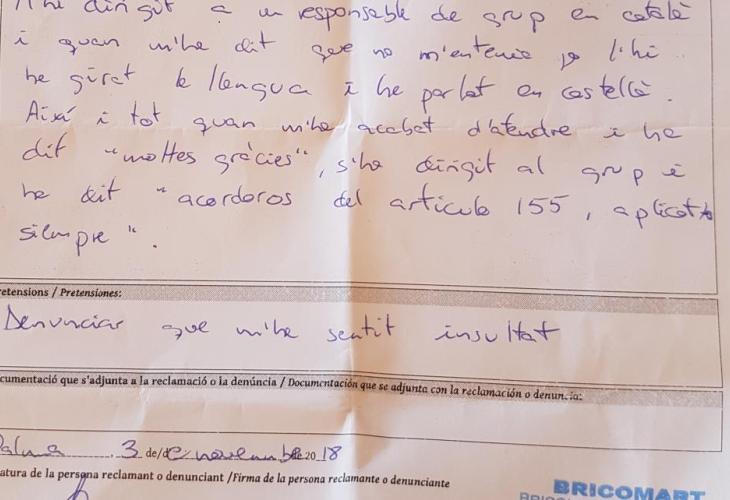 M'he dirigit a un responsable de grup en català
i quan m'he dit que no m'entenia jo l'hi
he girat la llengua i he parlat en castellà.
Així i tot quan m'he acabat d'atendre i he
dit "moltes gràcies", s'ha dirigit al grup i
ha dit "acordaros del articulo 155, aplicat
siempre".
retensions / Pretensiones:
Denunciar que m'he sentit insultat
cumentació que s'adjunta a la reclamació o la denúncia / Documentación que se adjunta con la reclamación o denuncia:
Palma 3 de/de novembre 20 18
atura de la persona reclamant o denunciant /Firma de la persona reclamante o denunciante
BRICOMART